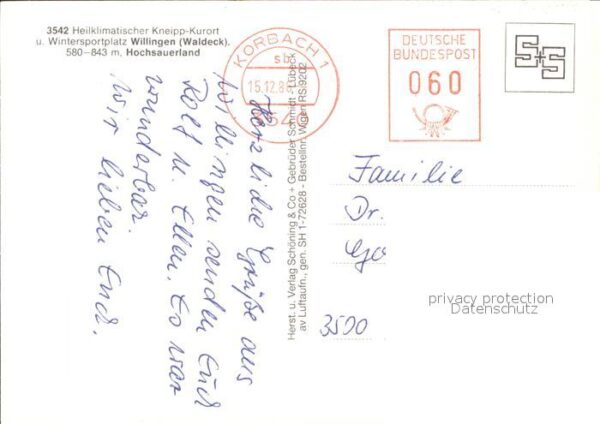 3542 Heilklimatischer Kneipp-Kurort
u. Wintersportplatz Willingen (Waldeck).
580–843 m, Hochsauerland
KORBACH 1
sb
15.12.8
DEUTSCHE
BUNDESPOST
060
S+S
Herzliche Grüße aus
Willingen senden Euch
Rolf u. Ellen. Es war
wunderbar.
Wir lieben Euch.
Herst. u. Verlag Schöning & Co + Gebrüder Schmidt - Lübeck
av Luftaufn., gen. SH 1-72628 - Bestellnr. Wigen RS 9202
Familie
Dr.
3500
privacy protection
Datenschutz